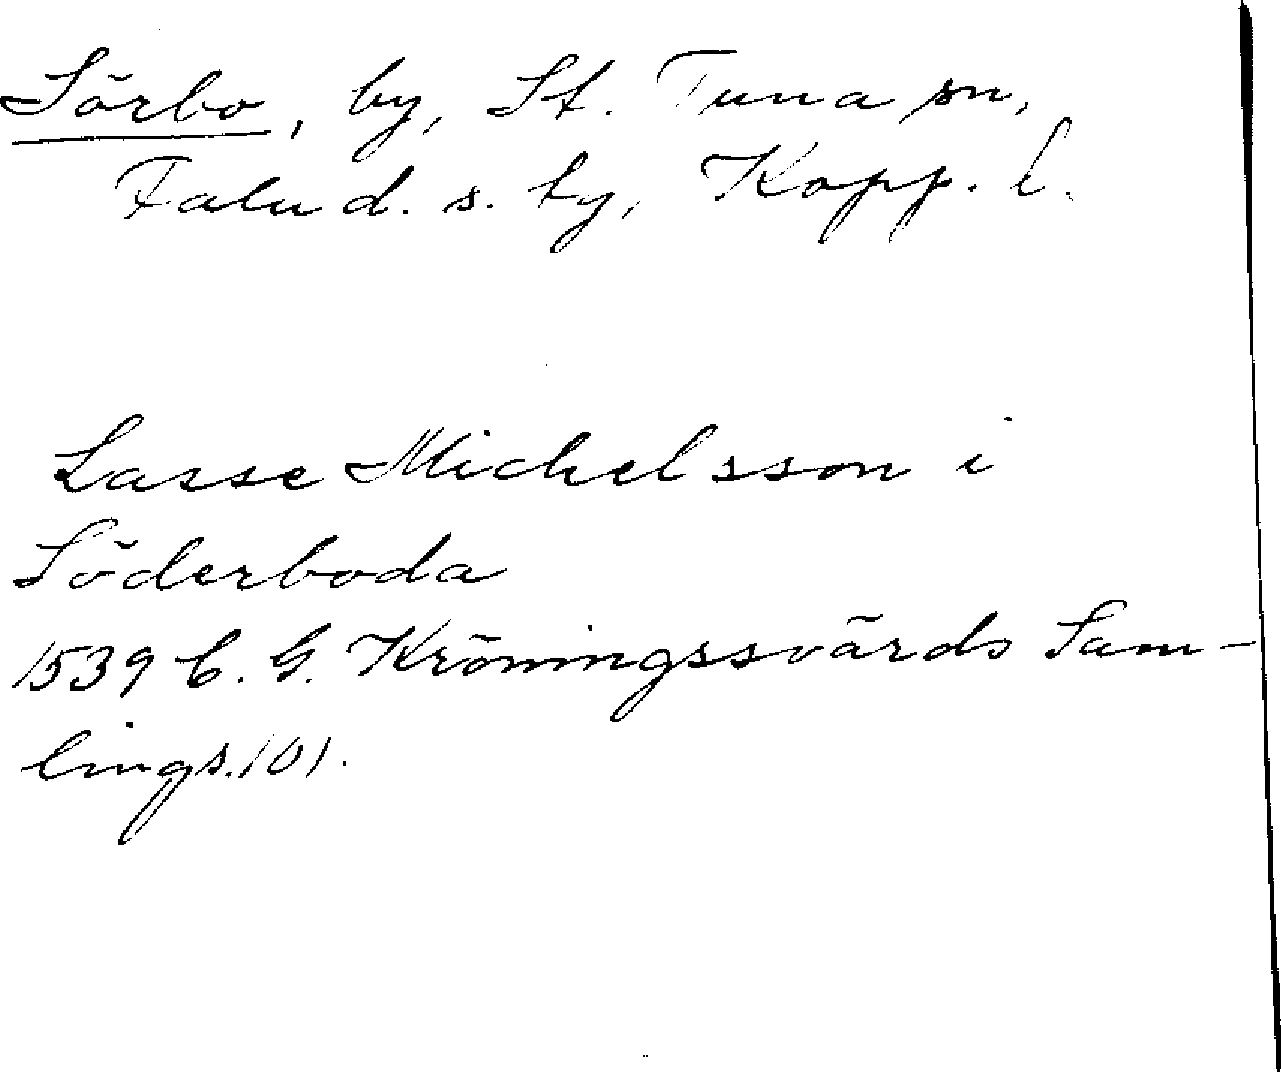 Sörbo, by, St. Tuna sn,
Falu d. s. ty, Kopp. l.
Lasse Michelsson i
Söderboda
1539 C. G. Kröningssvärds Sam-
lings. 101.